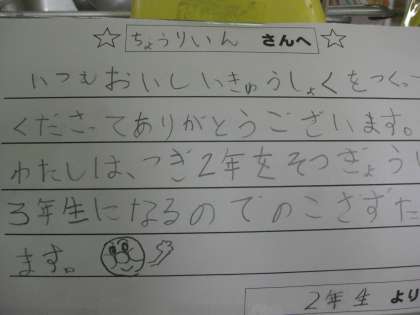 ☆ ちょうりいん さんへ ☆
いつもおいしいきゅうしょくをつくっ
くださってありがとうございます。
わたしは、つぎ2年をそつぎょうし
3年生になるのでのこさずた
ます。
2年生 より